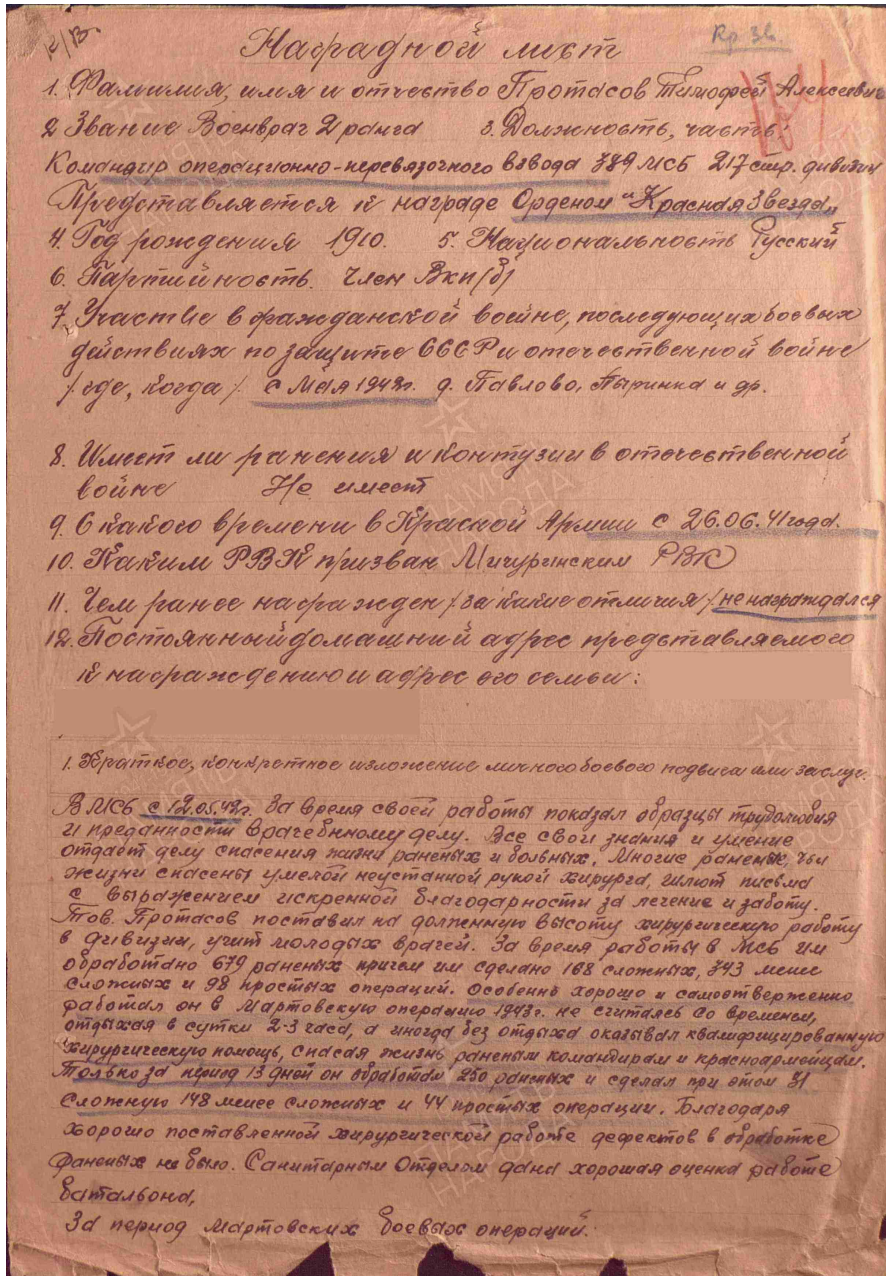 Кр 36.
Наградной лист
1. Фамилия, имя и отчество Протасов Тимофей Алексеевич
2 Звание Военврач 2 ранга 3. Должность, часть:
Командир операционно-перевязочного взвода 389 МСБ 217 стр. дивизии
Представляется к награде Орденом "Красная Звезда"
4. Год рождения 1910. 5. Национальность Русский
6. Партийность. Член Вкп/б/
7. Участие в гражданской войне, последующих боевых
действиях по защите СССР и отечественной войне
/где, когда/. с Мая 1942г. д. Павлово, и др.
8. Имеет ли ранения и контузии в отечественной
войне Не имеет
9. С какого времени в Красной Армии с 26.06.41 года.
10. Каким РВК призван Мичуринским РВК
11. Чем ранее награжден /за какие отличия/ не награждался
12. Постоянный домашний адрес представляемого
к награждению и адрес его семьи:
1. Краткое, конкретное изложение личного боевого подвига или заслуг.
В МСБ с 12.05.42г. За время своей работы показал образцы трудолюбия
и преданности врачебному делу. Все свои знания и умение
отдает делу спасения жизни раненых и больных. Многие раненые, чьи
жизни спасены умелой неустанной рукой хирурга, шлют письма
с выражением искренной благодарности за лечение и заботу.
Тов. Протасов поставил на должную высоту хирургическую работу
в дивизии, учит молодых врачей. За время работы в МСБ им
обработано 679 раненых причем им сделано 168 сложных, 343 менее
сложных и 98 простых операций. Особенно хорошо и самоотверженно
работал он в Мартовскую операцию 1943г. не считаясь со временем,
отдыхая в сутки 2-3 часа, а иногда без отдыха оказывал квалифицированную
хирургическую помощь, спасая жизнь раненым командирам и красноармейцам.
Только за период 13 дней он обработал 250 раненых и сделал при этом 31
сложную 148 менее сложных и 44 простых операции. Благодаря
хорошо поставленной хирургической работе дефектов в обработке
раненых не было. Санитарным Отделом дана хорошая оценка работе
батальона,
За период Мартовских боевых операций.
ПАМЯТЬ
НАРОДА